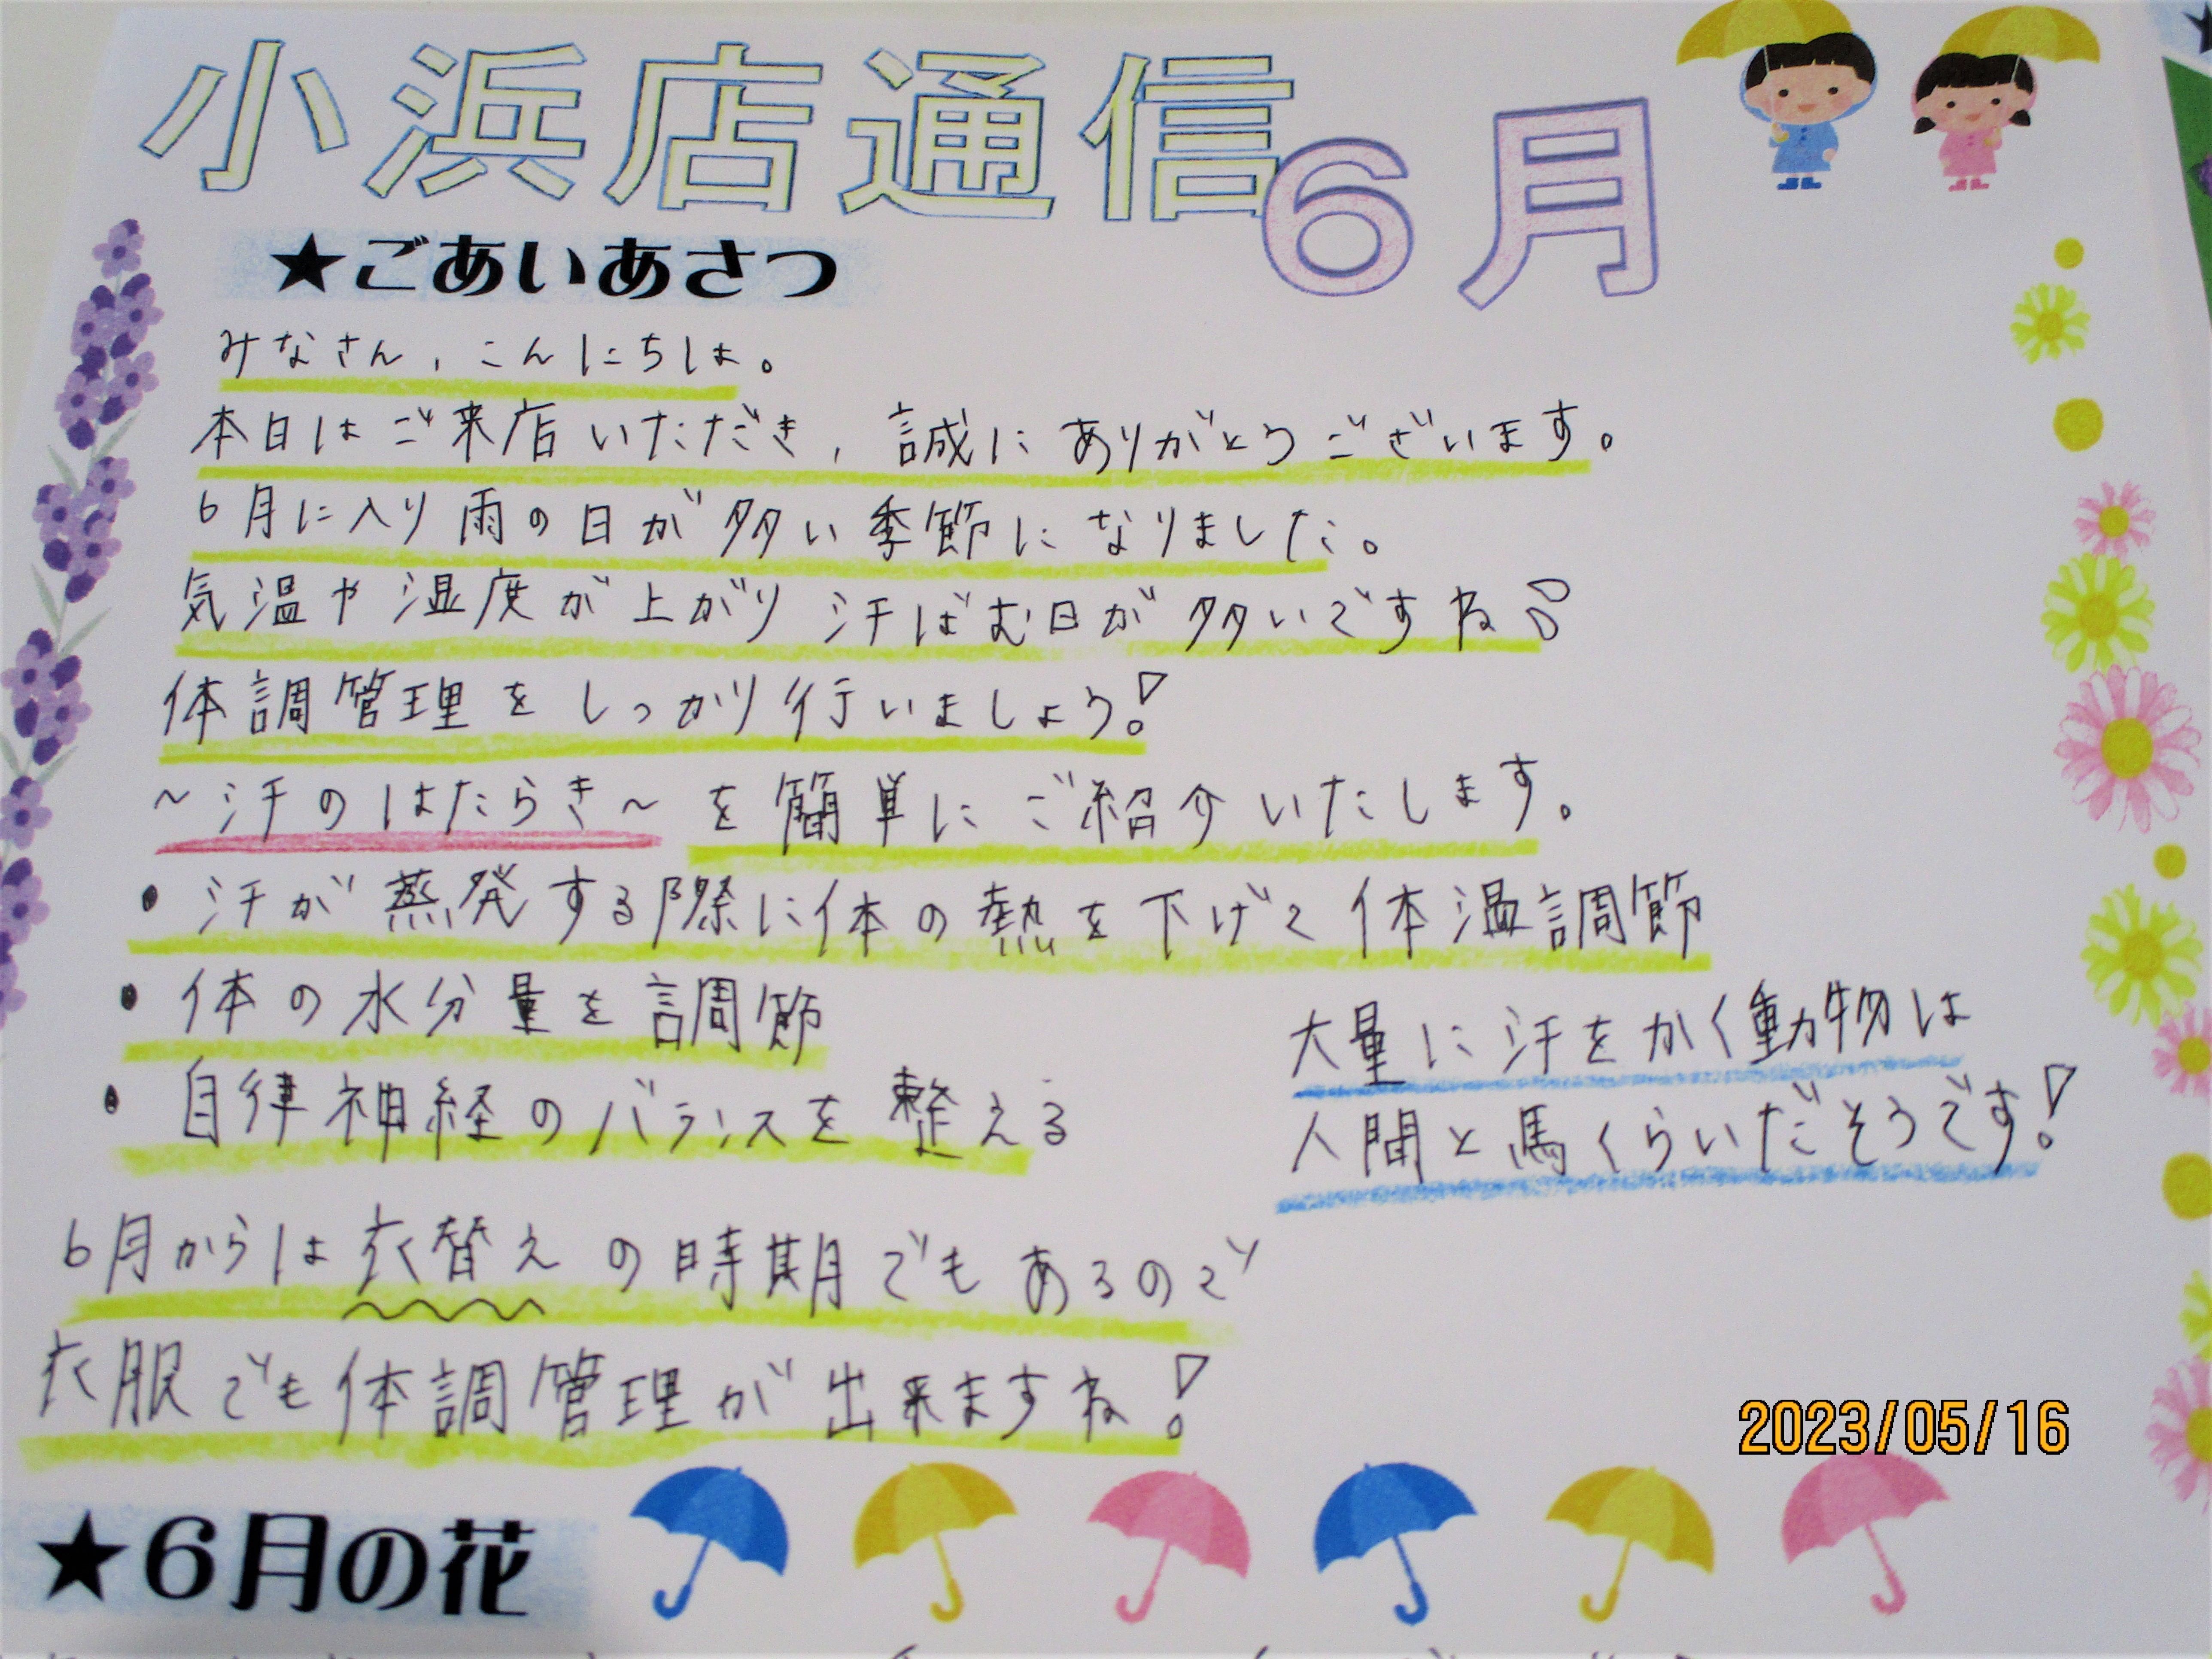 小浜店通信
6月
★ごあいあさつ
みなさん、こんにちは。
本日はご来店いただき、誠にありがとうございます。
6月に入り雨の日が多い季節になりました。
気温や湿度が上がり汗ばむ日が多いですね
体調管理をしっかり行いましょう!
~汗のはたらき~を簡単にご紹介いたします。
・汗が蒸発する際に体の熱を下げて体温調節
・体の水分量を調節
・自律神経のバランスを整える
大量に汗をかく動物は
人間と馬くらいだそうです!
6月からは衣替えの時期でもあるので
衣服でも体調管理が出来ますね!
2023/05/16
★6月の花